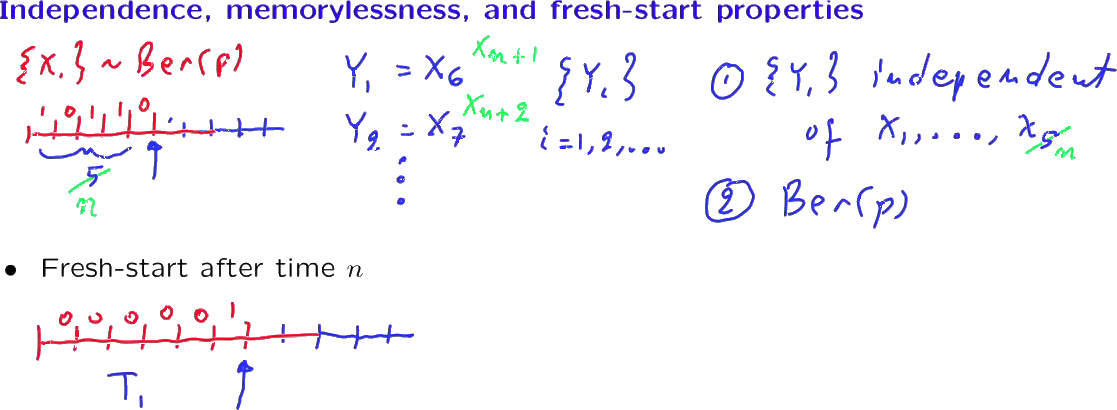 Independence, memorylessness, and fresh-start properties
{X.} ~ Ber(p)
1 0 1 1 0
5
n
Y1 = X6 Xn+1
Y2 = X7 Xn+2
{Yi}
i=1,2,...
① {Yi} independent
of X1,..., X5 n
② Ber(p)
• Fresh-start after time n
0 0 0 0 0 1
T1